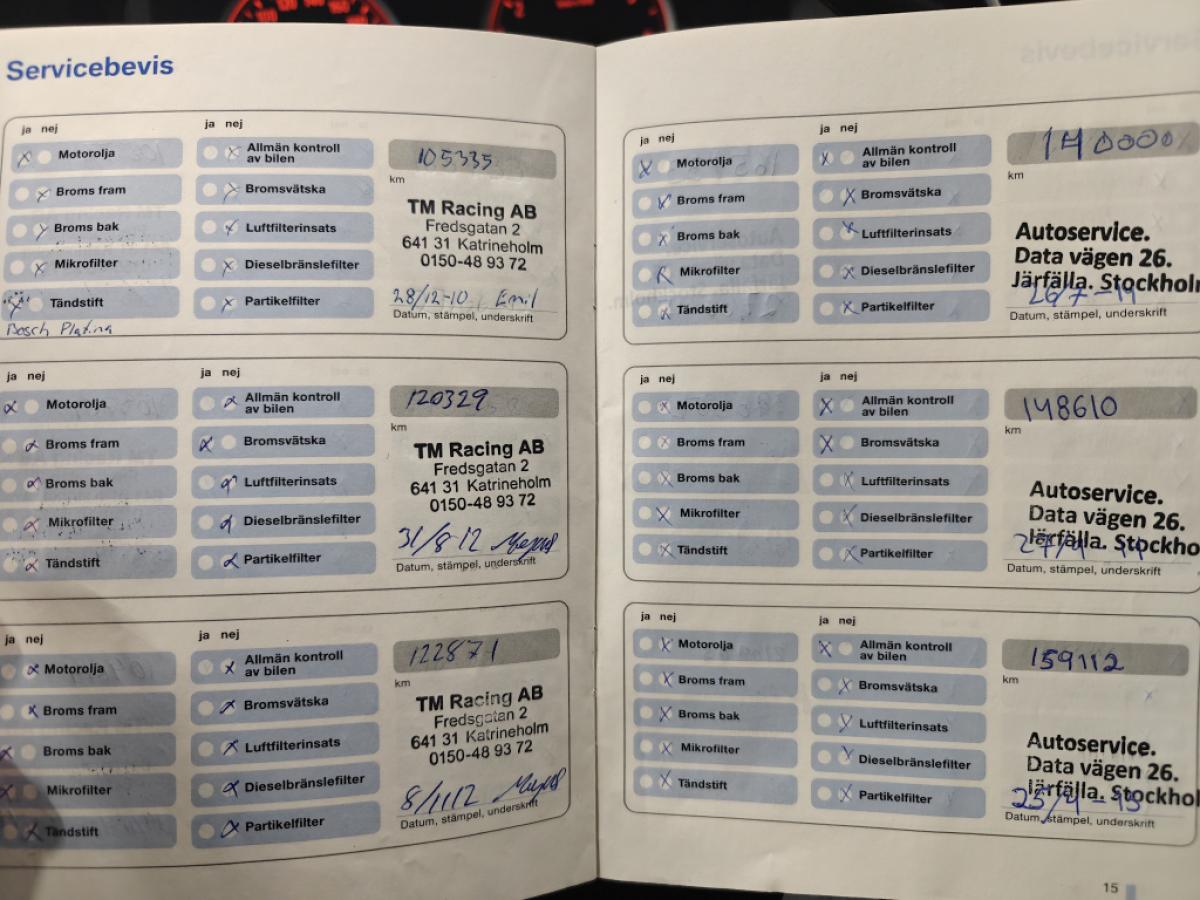 Servicebevis
ja nej
ja nej
Motorolja
Allmän kontroll
av bilen
105335
km
Broms fram
Bromsvätska
TM Racing AB
Fredsgatan 2
641 31 Katrineholm
0150-48 93 72
Broms bak
Luftfilterinsats
Mikrofilter
Dieselbränslefilter
Tändstift
Partikelfilter
28/12-10 Emil
Bosch Platina
Datum, stämpel, underskrift
ja nej
ja nej
Motorolja
Allmän kontroll
av bilen
120329
km
Broms fram
Bromsvätska
TM Racing AB
Fredsgatan 2
641 31 Katrineholm
0150-48 93 72
Broms bak
Luftfilterinsats
Mikrofilter
Dieselbränslefilter
Tändstift
Partikelfilter
31/8-12
Datum, stämpel, underskrift
ja nej
ja nej
Motorolja
Allmän kontroll
av bilen
122871
km
Broms fram
Bromsvätska
TM Racing AB
Fredsgatan 2
641 31 Katrineholm
0150-48 93 72
Broms bak
Luftfilterinsats
Mikrofilter
Dieselbränslefilter
Tändstift
Partikelfilter
8/1112
Datum, stämpel, underskrift
ja nej
ja nej
Motorolja
Allmän kontroll
av bilen
140000
km
Broms fram
Bromsvätska
Autoservice.
Data vägen 26.
Järfälla. Stockholm
Broms bak
Luftfilterinsats
Mikrofilter
Dieselbränslefilter
Tändstift
Partikelfilter
Datum, stämpel, underskrift
ja nej
ja nej
Motorolja
Allmän kontroll
av bilen
148610
km
Broms fram
Bromsvätska
Autoservice.
Data vägen 26.
Järfälla. Stockho
Broms bak
Luftfilterinsats
Mikrofilter
Dieselbränslefilter
Tändstift
Partikelfilter
Datum, stämpel, underskrift
ja nej
ja nej
Motorolja
Allmän kontroll
av bilen
159112
km
Broms fram
Bromsvätska
Autoservice.
Data vägen 26.
Järfälla. Stockhol
Broms bak
Luftfilterinsats
Mikrofilter
Dieselbränslefilter
Tändstift
Partikelfilter
Datum, stämpel, underskrift
15